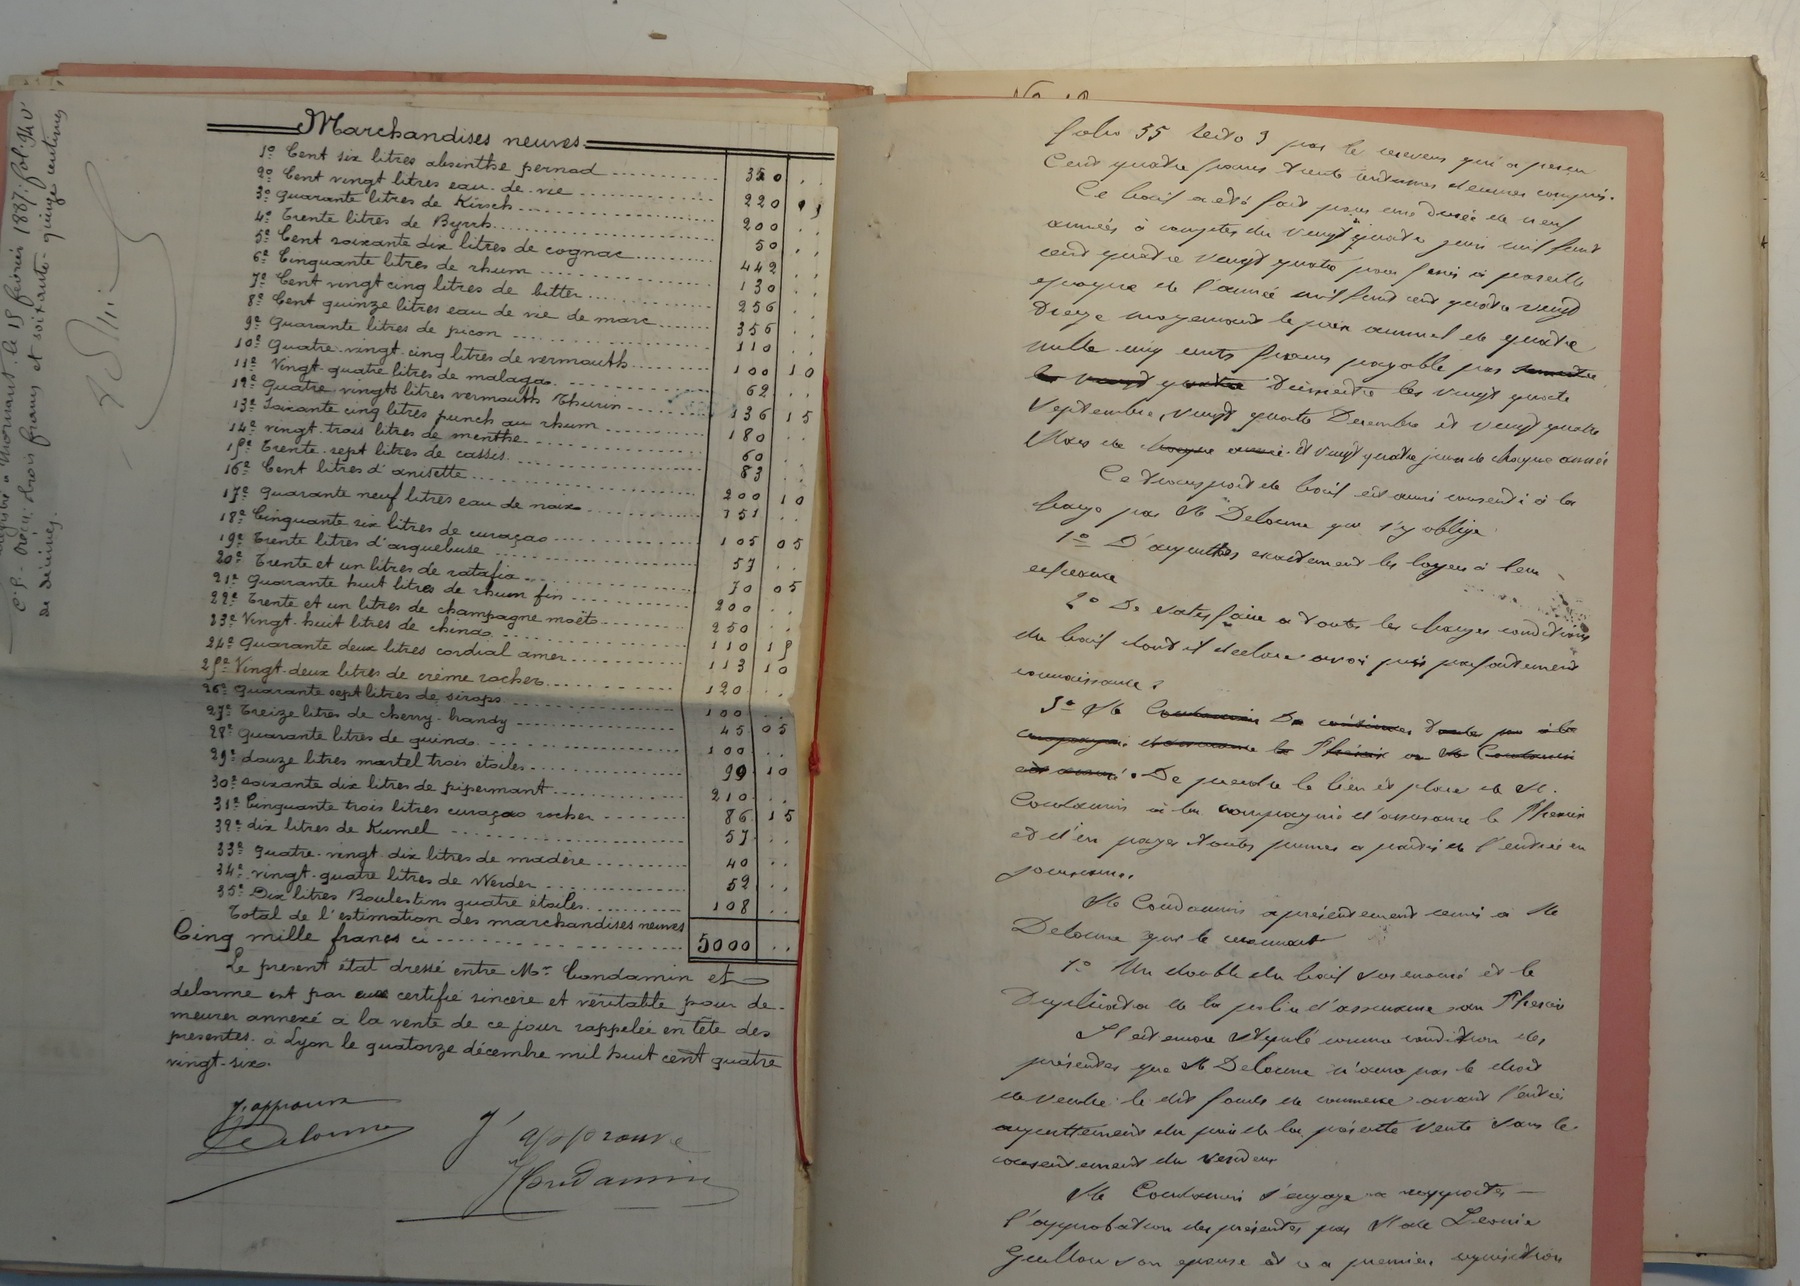 Marchandises neuves
1º Cent six litres absinthe pernod 350 ..
2º Cent vingt litres eau-de-vie 220
3º Quarante litres de Kirsch 200 ..
4º Trente litres de Byrrh 50 ..
5º Cent soixante dix litres de cognac 442 ..
6º Cinquante litres de rhum 130 ..
7º Cent vingt cinq litres de bitter 256 ..
8º Cent quinze litres eau de vie de marc 356 ..
9º Quarante litres de picon 110 ..
10º Quatre-vingt-cinq litres de vermouth 100 10
11º Vingt-quatre litres de malaga 62 ..
12º Quatre vingts litres vermouth Thurin 136 15
13º Soixante cinq litres punch au rhum 180 ..
14º vingt-trois litres de menthe 60 ..
15º Trente-sept litres de cassis 83 ..
16º Cent litres d'anisette 200 10
17º Quarante neuf litres eau de noix 151 ..
18º Cinquante six litres de curaçao 105 05
19º Trente litres d'arquebuse 57 ..
20º Trente et un litres de ratafia 70 05
21º Quarante huit litres de rhum fin 200 ..
22º Trente et un litres de champagne moëts 250 ..
23º Vingt-huit litres de china 110 15
24º Quarante deux litres cordial amer 113 10
25º Vingt-deux litres de crème rocher 120 ..
26º Quarante sept litres de sirops 100 ..
27º Treize litres de cherry-brandy 45 05
28º Quarante litres de quina 100 ..
29º douze litres martel trois étoiles 99 10
30º soixante dix litres de pipermant 210 ..
31º Cinquante trois litres curaçao rocher 86 15
32º dix litres de Kumel 57 ..
33º Quatre-vingt-dix litres de madère 40 ..
34º vingt-quatre litres de Werder 52 ..
35º Dix litres Boulestins quatre étoiles 108 ..
Total de l'estimation des marchandises neuves
Cinq mille francs ci 5000 ..
Le présent état dressé entre Mr Condamin et
delorme est par eux certifié sincère et véritable pour de-
meurer annexé à la vente de ce jour rappelée en tête des
presentes. a Lyon le quatorze décembre mil huit cent quatre
vingt-six.
J'approuve
Delorme
J'approuve
Condamin
Enregistré à Mornant, le 15 février 1887, fol. 94 v
C. 8. Reçu: trois francs et soixante-quinze centimes
de décimes.
folio 35 recto 3 par le receveur qui a perçu
Cent quatre francs trente centimes décimes compris.
Ce bail a été fait pour une durée de neuf
années à compter du vingt quatre juin mil huit
cent quatre vingt quatre pour finir à pareille
époque de l'année mil huit cent quatre vingt
treize moyennant le prix annuel de quatre
mille cinq cents francs payable par semestre
les vingt quatre trimestre les vingt quatre
septembre, vingt quatre Decembre et vingt quatre
Mars de chaque année et vingt quatre juin de chaque année
Ce transport de bail est aussi consenti à la
charge par Mr Delorme qui s'y oblige
1º D'acquitter exactement les loyers à leur
échéance
2º De satisfaire à toutes les charges conditions
du bail dont il déclare avoir pris parfaitement
connaissance.
3º Mr Condamin
compagnie d'assurance le Phénix Mr Condamin
est assuré. De prendre le lieu et place de Mr
Condamin à la compagnie d'assurance le Phénix
et d'en payer toutes primes à partir de l'entrée en
jouissance.
Mr Condamin a présentement remis à Mr
Delorme qui le reconnait
1º Un double du bail susénoncé et le
Duplicata de la police d'assurance au Phénix
Il est encore stipulé comme condition des
présentes que Mr Delorme n'aura pas le droit
de vendre le dit fonds de commerce avant l'entier
acquittement du prix de la présente vente sans le
consentement du vendeur
Mr Condamin s'engage à rapporter
l'approbation des présentes par Made Leonie
Guillou son épouse et à première réquisition